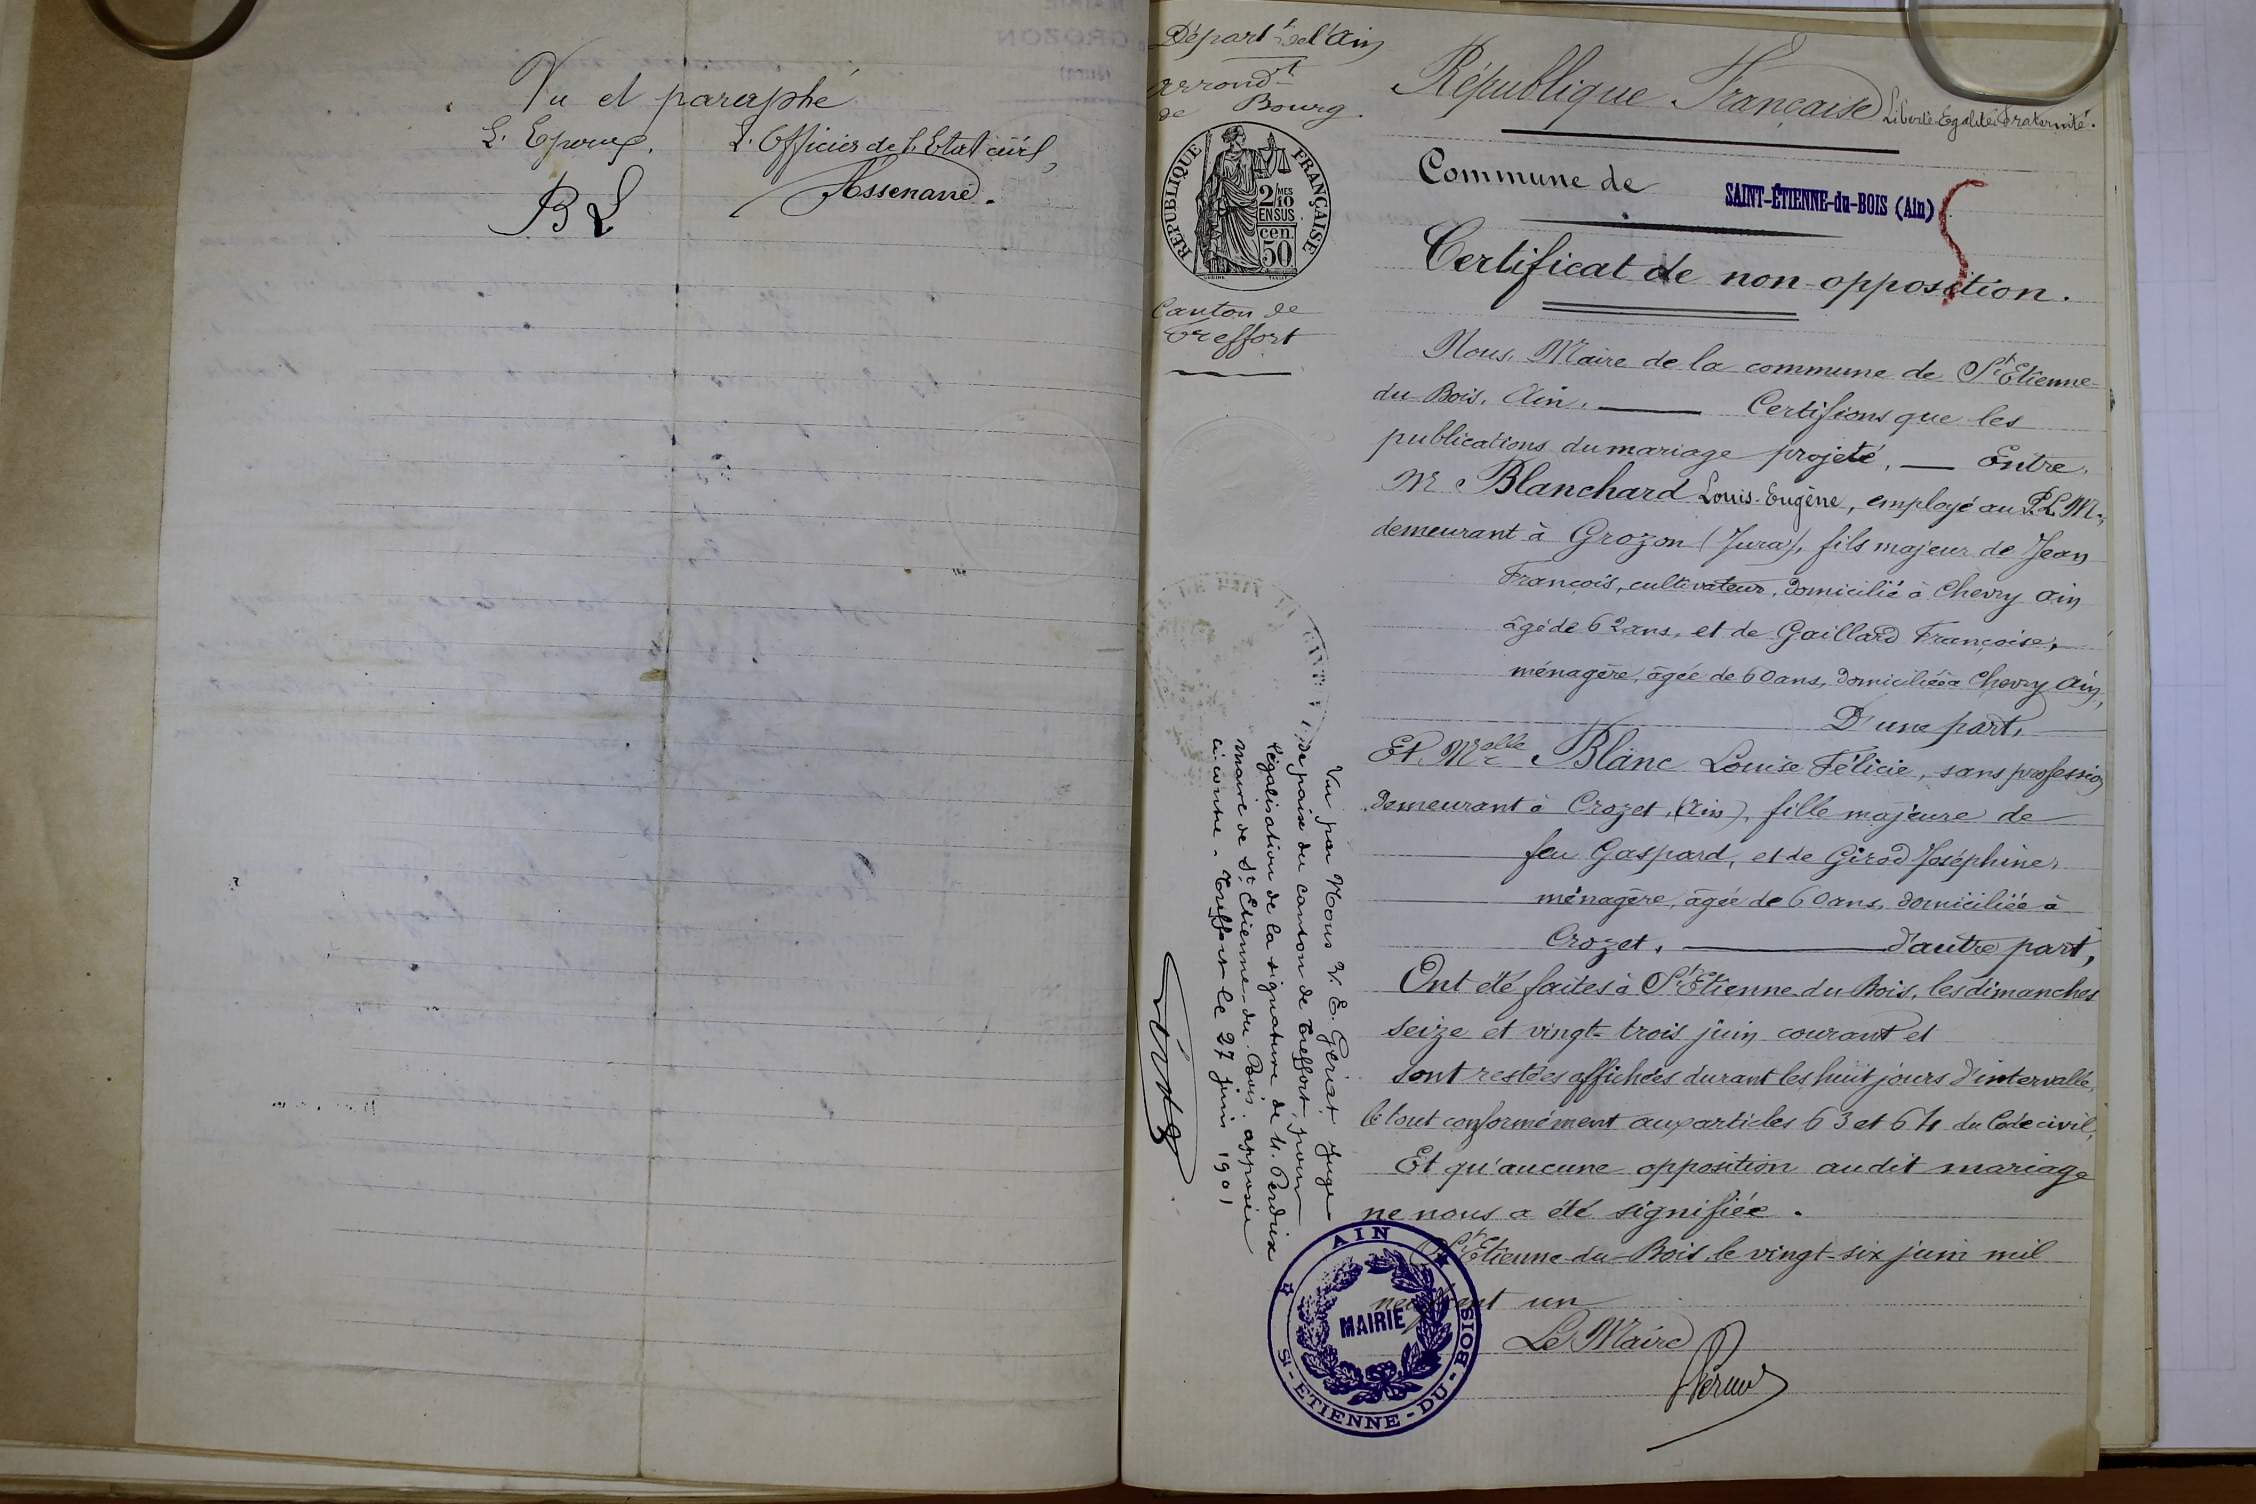 Vu et paraphé
L'Epoux,
L'Officier de l'Etat civil,
BL
Départt de l'Ain
Arrondt
de Bourg.
RÉPUBLIQUE FRANÇAISE
2/10 MES
EN SUS
cen.
50
Canton de
Treffort
République Française Liberté-Egalité-Fraternité.
Commune de
SAINT-ÉTIENNE-du-BOIS (Ain)
Certificat de non-opposition.
Nous, Maire de la commune de St Etienne
du-Bois, Ain, Certifions que les
publications du mariage projeté, Entre,
Mr Blanchard Louis-Eugène, employé au P.L.M.,
demeurant à Grozon (Jura), fils majeur de Jean
François, cultivateur, domicilié à Chevry Ain
âgé de 62 ans, et de Gaillard Françoise,
ménagère, âgée de 60 ans, domiciliée à Chevry Ain,
D'une part,
Et Melle Blanc Louise Félicie, sans profession
demeurant à Crozet, (Ain), fille majeure de
feu Gaspard, et de Girod Joséphine,
ménagère, âgée de 60 ans, domiciliée à
Crozet, d'autre part,
Ont été faites à St Etienne-du-Bois, les dimanches
seize et vingt-trois juin courant et
sont restées affichées durant les huit jours d'intervalle,
le tout conformément aux articles 63 et 64 du Code civil,
Et qu'aucune opposition audit mariage
ne nous a été signifiée.
St Etienne-du-Bois, le vingt-six juin mil
neuf cent un
Le Maire
AIN
MAIRIE
St-ETIENNE-DU-BOIS
Vu par Nous V. E. Gériat, Juge
de paix du canton de Treffort, pour
légalisation de la signature de M. Perdrix
maire de St Etienne-du-Bois, apposée
ci-contre. Treffort le 27 juin 1901